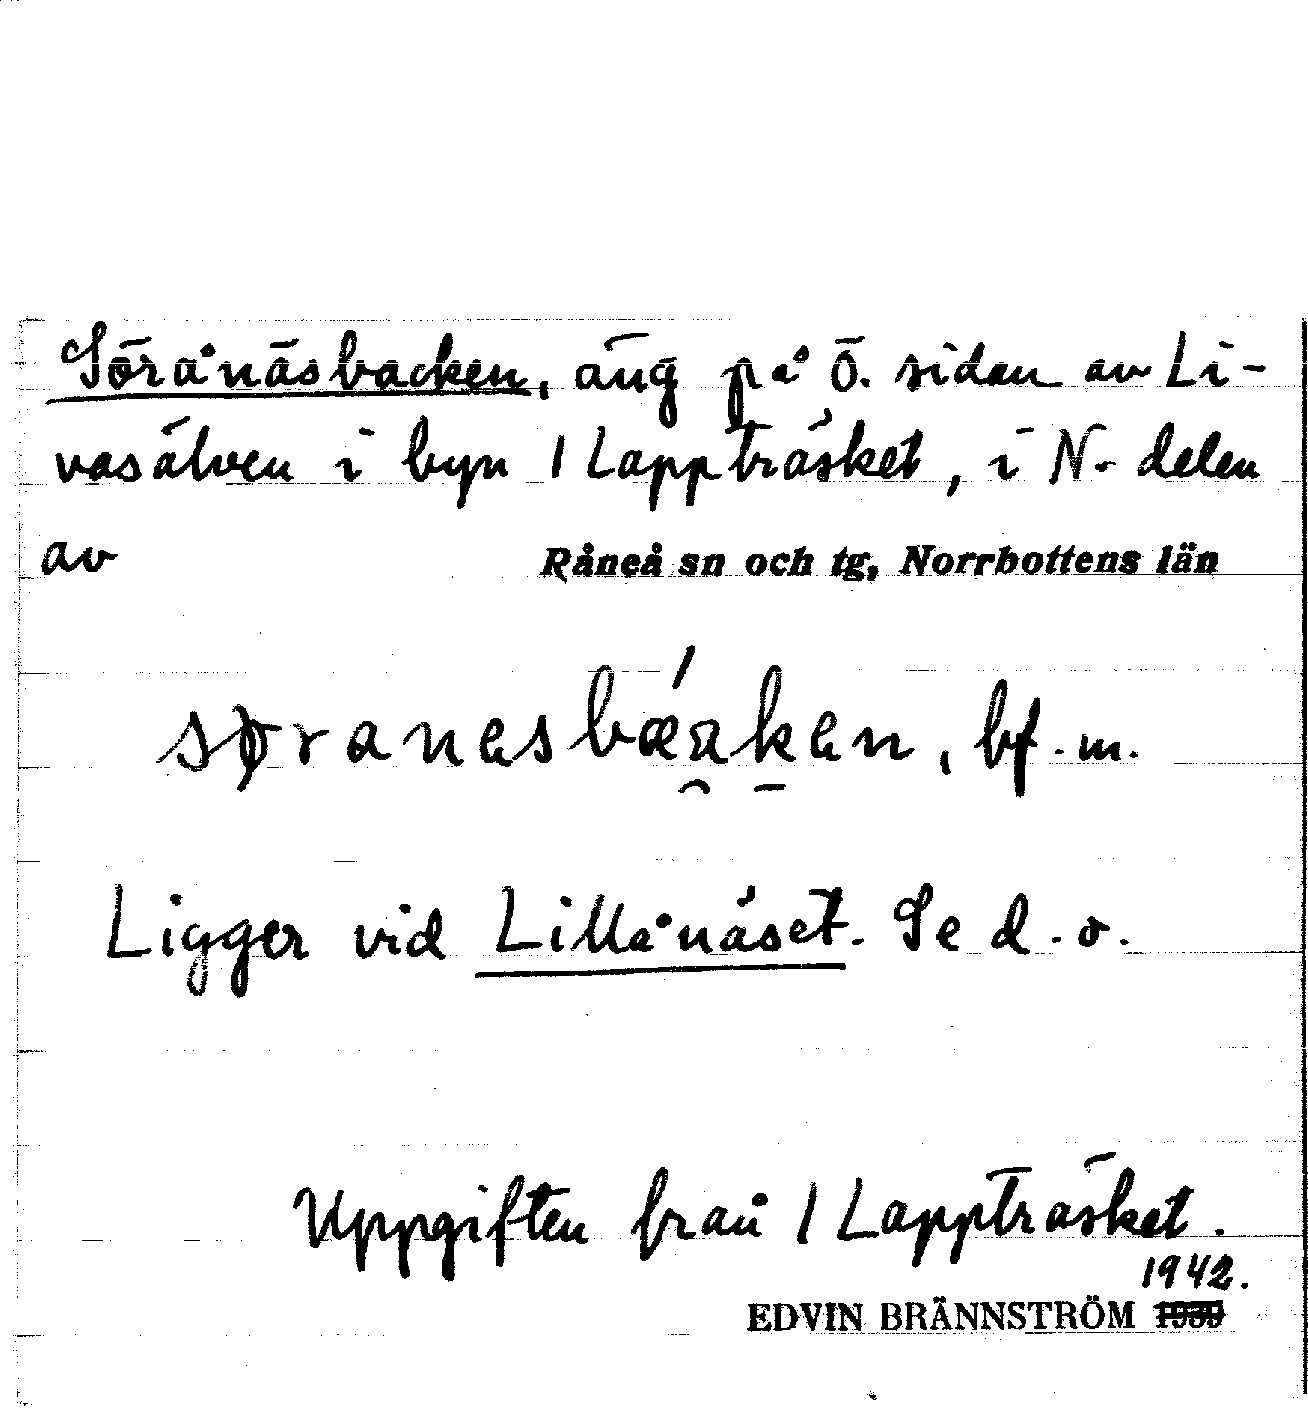 Sörånäsbacken, äng på Ö. sidan av Li-
vasälven i byn 1 Lappträsket, i N. delen
av Råneå sn och tg, Norrbottens län
søranesbǽa̯k̠en, bf. m.
Ligger vid Lillånäset. Se d. o.
Uppgiften från 1 Lappträsket.
1942.
EDVIN BRÄNNSTRÖM 1939